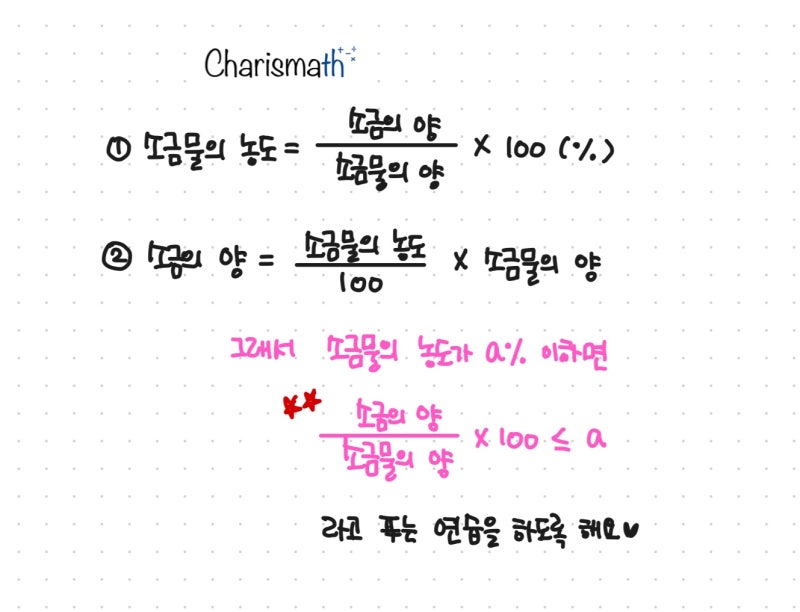 Charismath
① 소금물의 농도 = 소금의 양 / 소금물의 양 × 100 (%)
② 소금의 양 = 소금물의 농도 / 100 × 소금물의 양
그래서 소금물의 농도가 a% 이하면
소금의 양 / 소금물의 양 × 100 ≤ a
라고 푸는 연습을 하도록 해요♥